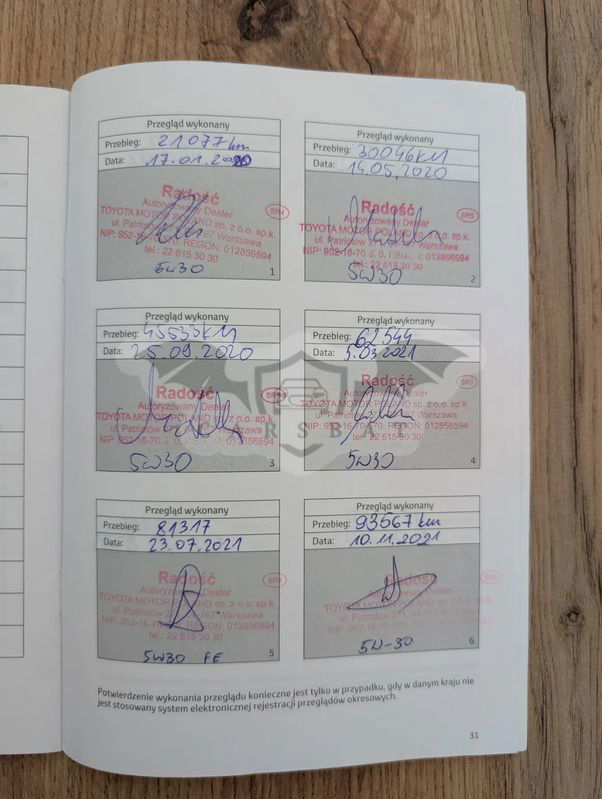 Przegląd wykonany
Przebieg: 21 077 km
Data: 17.01.2020
Radość
SR4
Autoryzowany Dealer
TOYOTA MOTOR POLAND sp. z o.o. sp.k.
ul. Patriotów Warszawa
NIP: 952-16-70 REGON: 012856594
tel.: 22 615 30 30
5W30
1
Przegląd wykonany
Przebieg: 30046KM
Data: 14.05.2020
Radość
SR5
Autoryzowany Dealer
TOYOTA MOTOR POLAND sp. z o.o. sp.k.
ul. Patriotów Warszawa
NIP: 952-16-70 012856594
tel.: 22 615 30 30
5W30
2
Przegląd wykonany
Przebieg: 45533KM
Data: 25.09.2020
Radość
Autoryzowany Dealer
TOYOTA MOTOR POLAND sp. z o.o. sp.k.
ul. Patriotów Warszawa
NIP: 952-16-70 012856594
5W30
3
Przegląd wykonany
Przebieg: 62544
Data: 5.03.2021
Radość
Autoryzowany Dealer
TOYOTA MOTOR POLAND sp. z o.o. sp.k.
ul. Patriotów Warszawa
NIP: 952-16-70 REGON: 012856594
tel.: 22 615 30 30
5W30
4
CARSBAT
Przegląd wykonany
Przebieg: 81317
Data: 23.07.2021
Radość
Autoryzowany Dealer
TOYOTA MOTOR POLAND sp. z o.o. sp.k.
ul. Patriotów Warszawa
NIP: 952-16-70 REGON: 012856594
tel.: 22 615 30 30
5W30 FE
5
Przegląd wykonany
Przebieg: 93567 km
Data: 10.11.2021
Radość
Autoryzowany Dealer
TOYOTA MOTOR POLAND sp. z o.o. sp.k.
ul. Patriotów Warszawa
NIP: 952-16-70 012856594
tel.: 22 615 30 30
5W-30
6
Potwierdzenie wykonania przeglądu konieczne jest tylko w przypadku, gdy w danym kraju nie
jest stosowany system elektronicznej rejestracji przeglądów okresowych.
31